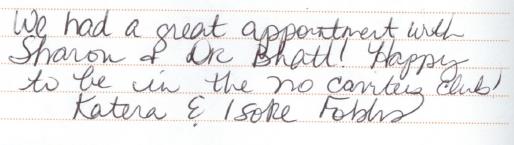 We had a great appointment with
Sharon & Dr Bhatt! Happy
to be in the no cavities club!
Katera & Isoke Fobbs